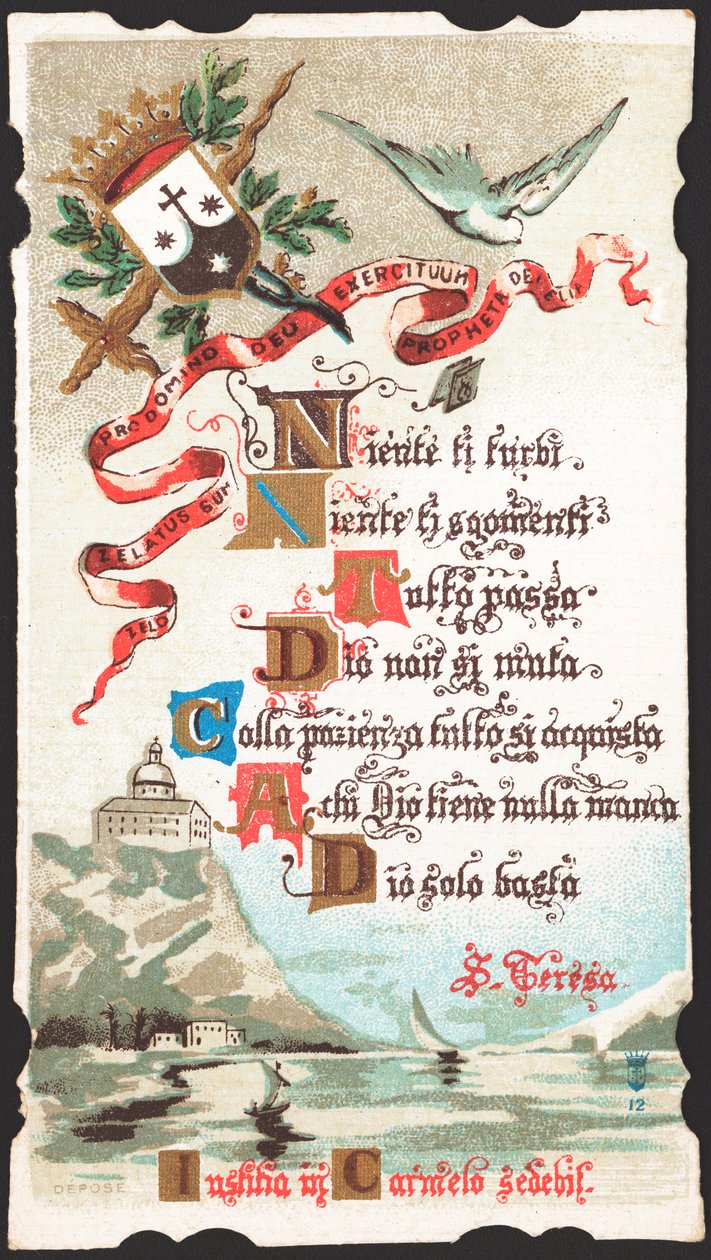 ZELO
ZELATUS SUM
PRO DOMINO DEO EXERCITUUM
PROPHETA DEI ELIA
Niente ti turbi
Niente ti sgomenti
Tutto passa
Dio non si muta
Colla pazienza tutto si acquista
A chi Dio tiene nulla manca
Dio solo basta
S. Teresa.
12
Iustitia in Carmelo sedebit.
DEPOSE